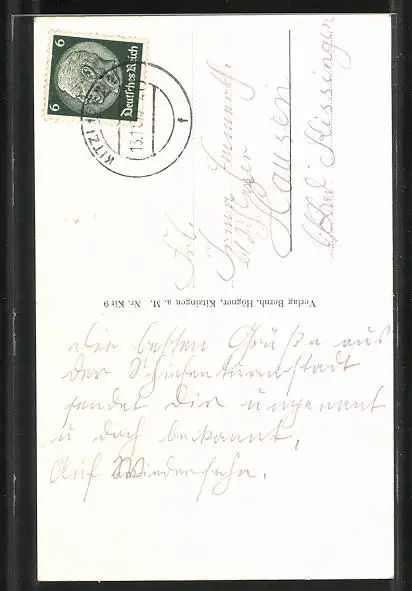 6 6
Deutsches Reich
KITZI
13.1
f
Frl.
Irma Emmert
b/
Hausen
b/ Bad Kissingen
Verlag Bernh. Högner, Kitzingen a. M. Nr. Kit 9
die besten Grüße aus
der Schiefenturmstadt
sendet Dir ungenant
u doch bekannt,
Auf Wiedersehn.